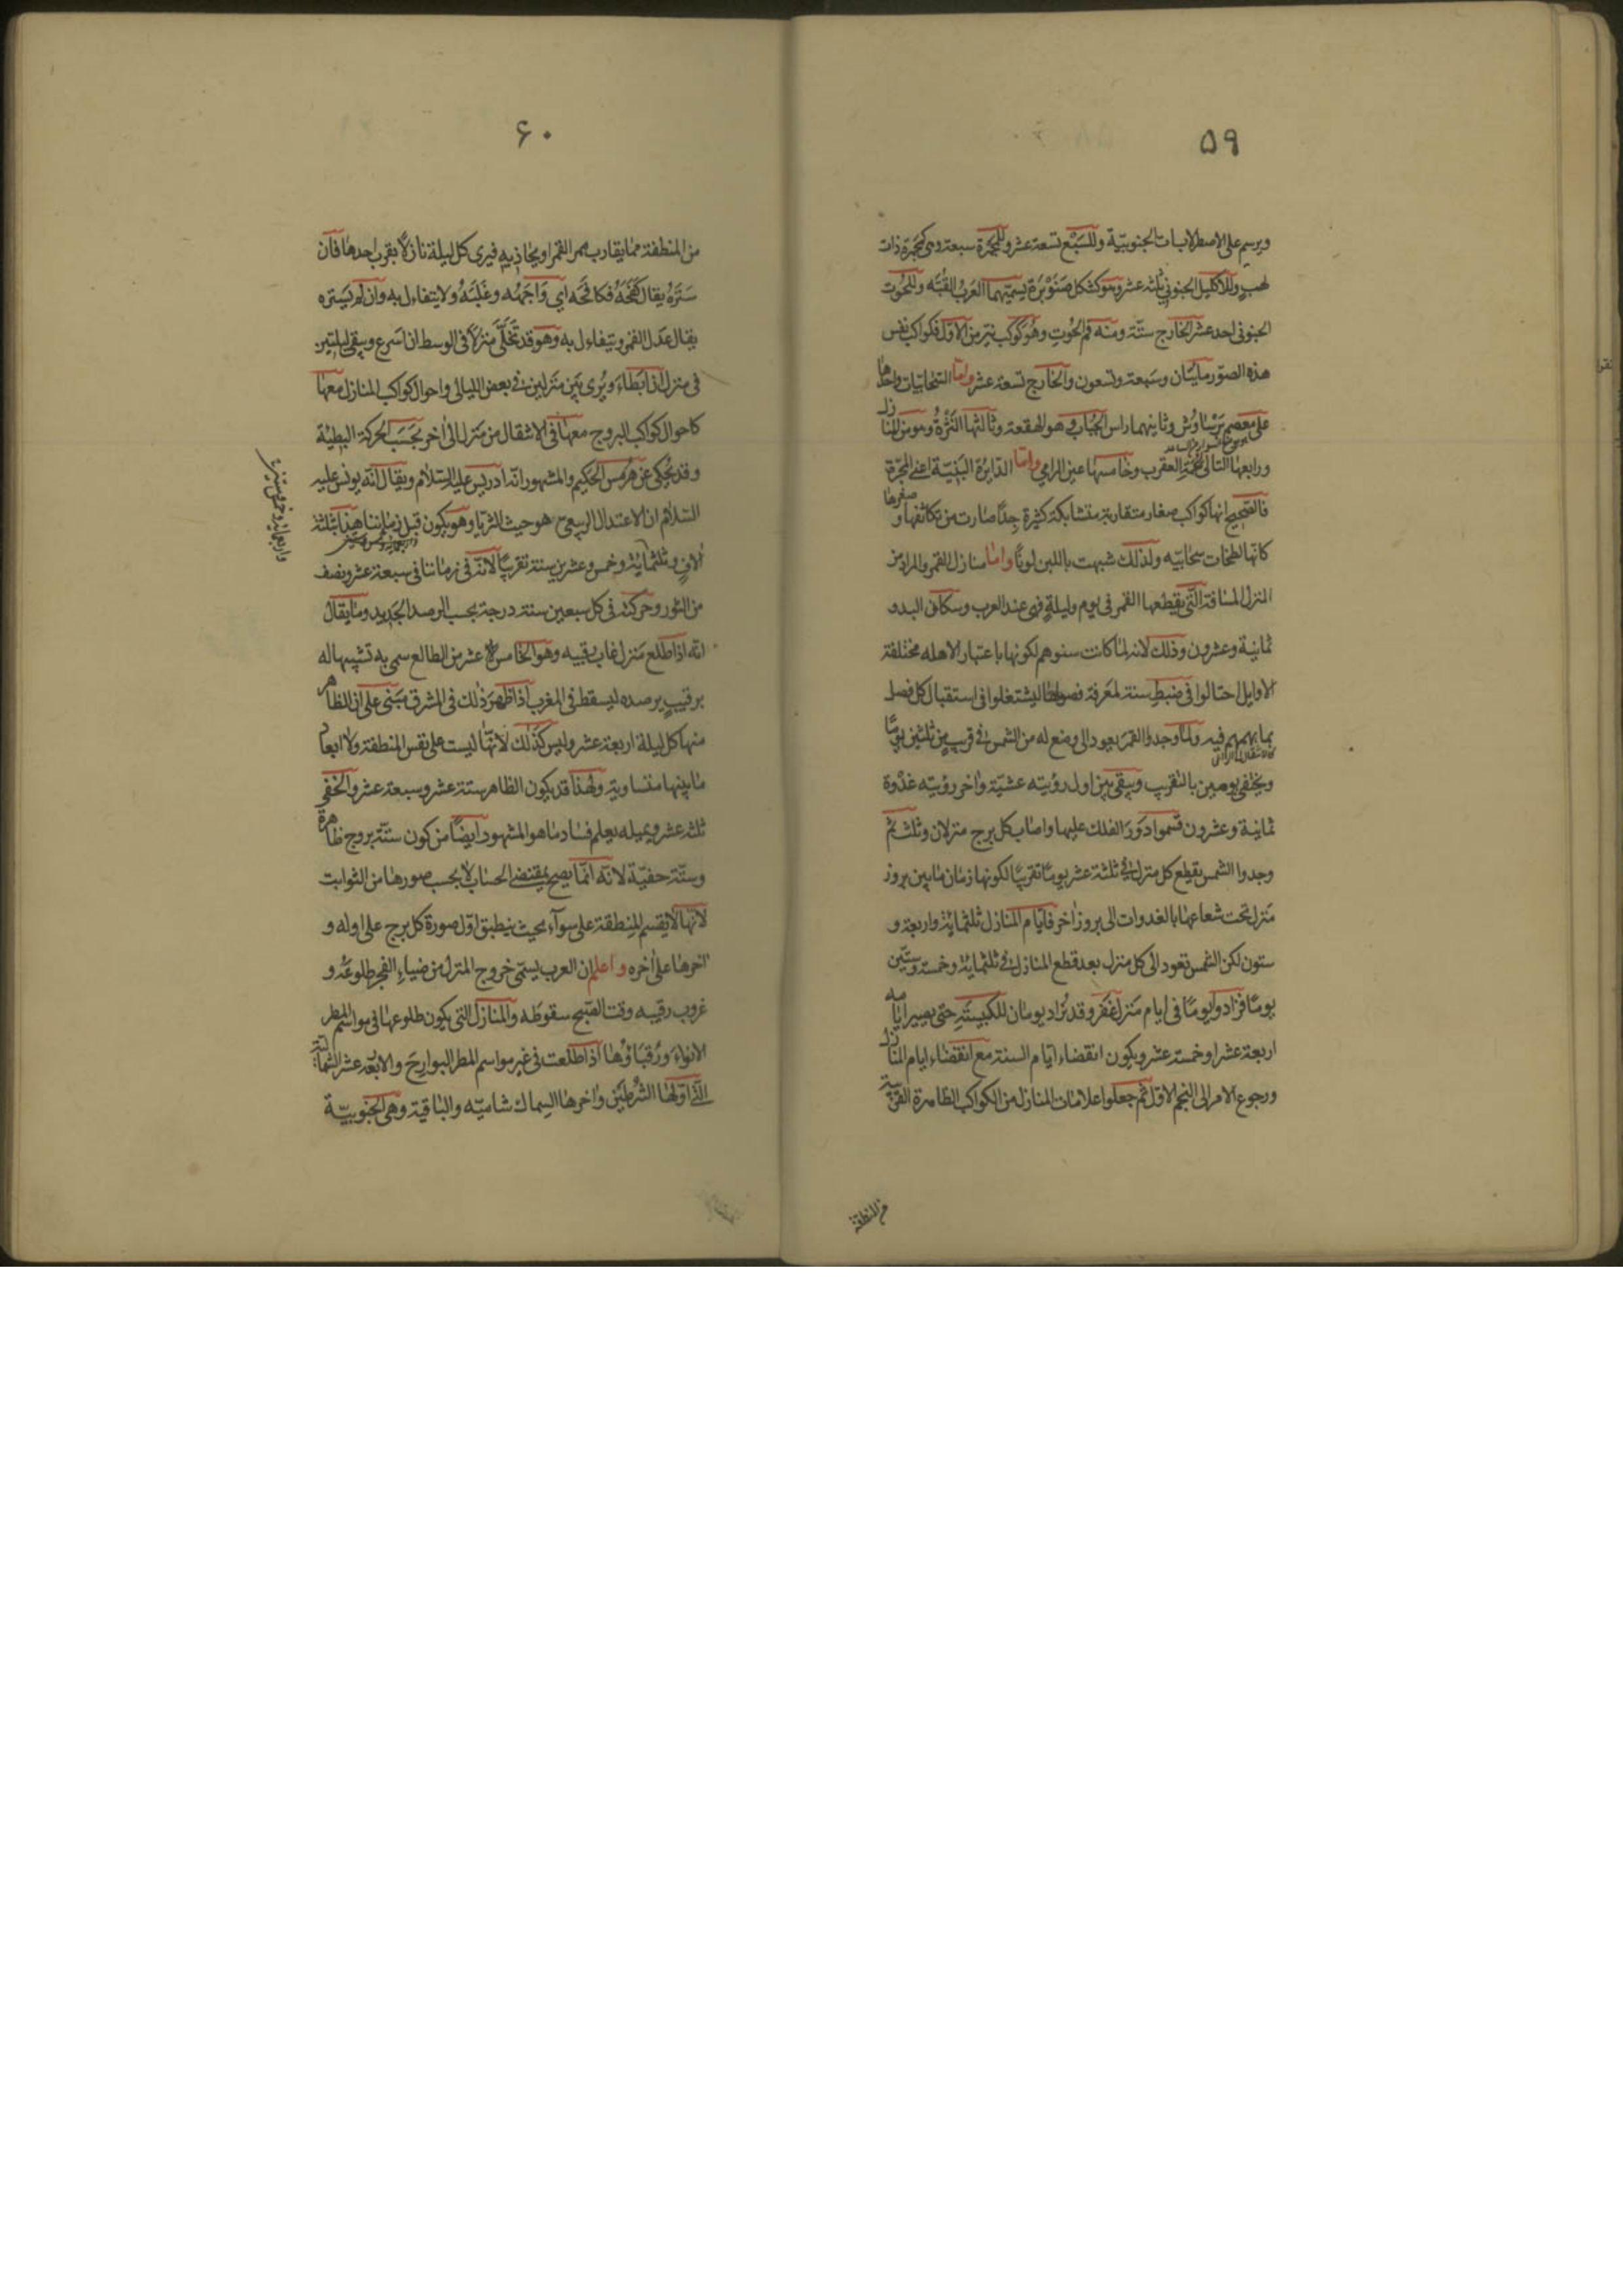 ٥٩
ويرسم على الاصطرلابات الجنوبيّة وللسَّبُع تسعة عشر وللمجمرة سبعة وهى كمجمرة ذات
لهب وللاكليل الجنوبي ثلثة عشر وهو كشكل صَنَوْبَرَة يسمّيهما العَرَبُ القبّه وللحُوت
الجنوبى احد عشر الخارج ستّة ومنه فم الحُوت وهُوَ كوكب نيّر من الاوّل فكواكب نفس
هذه الصوّر مايتان وسَبعة وتسعون والخارج تسعة عشر وامّا السّحابيّات واحدها
على معصم برْسَاوُش وثانيهما راس الجبّار وهو الهقعه وثالثها النَّثْرَةُ وهو من المنازل
ورابعها التالى لحُمَةِ العقرب وخامسها عين الرامي وامّا الدّايرَة اللبَنيّة اعنى المجرّة
فالصّحيح انها كواكب صغار متقاربة متشابكة كثيرة جِدًّا صارت من تكاثفها وصغرها
كانّها لطخات سحابيّه ولذلك شبهت باللبن لونًا وامّا منازل القمر والمراد من
المنزل المسافة الّتى يقطعها القمر فى يوم وليلةٍ فهى عند العرب وسكان البدو
ثمانية وعشرون وذلك لانه لمّا كانت سنوهم لكونها باعتبار الاهله مختلفة
الاوايل احتالوا فى ضبطِ سنة لمعرفة فصولها ليشتغلوا فى استقبال كل فصل
بما يهمهم فيه ولمّا وجدوا القمَر يعود الى وضع له من الشمس فى قريبٍ من ثلثين يومًا
ويختفى يومين بالتقريب ويبقى بين اول رؤيته عشيّة واخر رؤيته غدْوة
ثمانية وعشرون قسموا دَوَرَ الفلك عليها واصاب كل برج منزلان وثلث ثم
وجدوا الشمس تقطع كل منزل فى ثلثة عشر يومًا تقريبًا لكونها زمان مابين بروز
مَنزل تحت شعاعها بالغدوات الى بروز اٰخر فايّام المنازل ثلثمائة واربعة و
ستون لكن الشمس تعود الى كل منزل بعد قطع المنازل فى ثلثماية وخمسة وستّين
يومًا فزادوا يومًا فى ايام مَنزل غَفَر وقد تُزاد يومان للكبيسَةِ حتى يصير ايامه
اربعة عشر او خمسة عشر ويكون انقضاء ايّام السنة مع انقضاء ايام المنازل
ورجوع الامر الى النجم الاوّل ثم جعلوا علامات المنازل من الكواكب الظاهرة القريبة
من المنطقة
٦٠
من المنطقة مما يقارب ممر القمر او يحاذيه فيرى كل ليلة نازلًا بقرب احدها فان
سَتَرَهُ يقال كَفَحَهُ فكافَحَه اي وَاجَهَهُ وغَلَبَهُ ولايتفاءل به وان لم يَستره
يقال عَدَل القمر ويتفاءل به وهو قد تَخَلَّى منزلًا فى الوسط ان اسرع ويبقى ليلتين
فى منزل ان ابطاء ويُرى بَيَن منزلين فى بعض الليالى واحوال كواكب المنازل معها
كاحوال كواكب البروج معها فى الانتقال من مَنزل الى اٰخر بحَسَب الحركة البطيئة
وقد يُحكى عن هُرمِس الحكيم والمشهور انّه ادريس عليه السّلام ويقال انّه يونس عليه
السّلام ان الاعتدال الربيعىّ هو حيث الثريّا وهو يكون قبل زماننا هذا بثلثة
اٰلافٍ وثلثماية وخمس وعشرين سنة تقريبًا لانّه فى زماننا فى سبعة عشر ونصف
من الثور وحركته فى كل سبعين سنة درجة بحسب الرصد الجَديد وما يقال
انّه اذا طلع مَنزل غاب رقيبه وهو الخامس عشر من الطالع سمى به تشبيها له
برقيبٍ يرصده ليسقط فى المغرب اذا ظهرَ ذٰلك فى المشرق مَبنى على ان الظاهر
منها كل ليلة اربعة عشر وليس كذٰلك لانّها ليست على نفس المنطقة ولا ابعاد
مابينها متساوية ولهٰذا قد يكون الظاهر ستة عشر وسبعة عشر والخفى
ثلثة عشر وبمثله يعلم فساد ما هو المشهور ايضًا من كون ستّة بروج ظاهرة
وستّة خفيّة لانّه انّما يصح بمقتضى الحساب لا بحسب صورها من الثوابت
لانّها لا يقسم المِنطقة على سوآء بحيث ينطبق اوّل صورة كل برج على اوله و
اٰخرها على اٰخره واعلم ان العرب يسمّى خروج المنزل من ضياءِ الفجر طلوعَهُ و
غروب رقيبه وقت الصّبح سقوطَه والمنازل التى يكون طلوعها فى مواسم المطر
الانواءَ ورُقبَاؤُها اذا طلعت فى غير مواسم المطر البوارحَ والاربعة عشر الشمالية
الّتى اوّلها الشَّرَطَيْن واٰخرها السِماك شاميّه والباقية وهى الجنوبيّة
واربعماية وخمس وستين